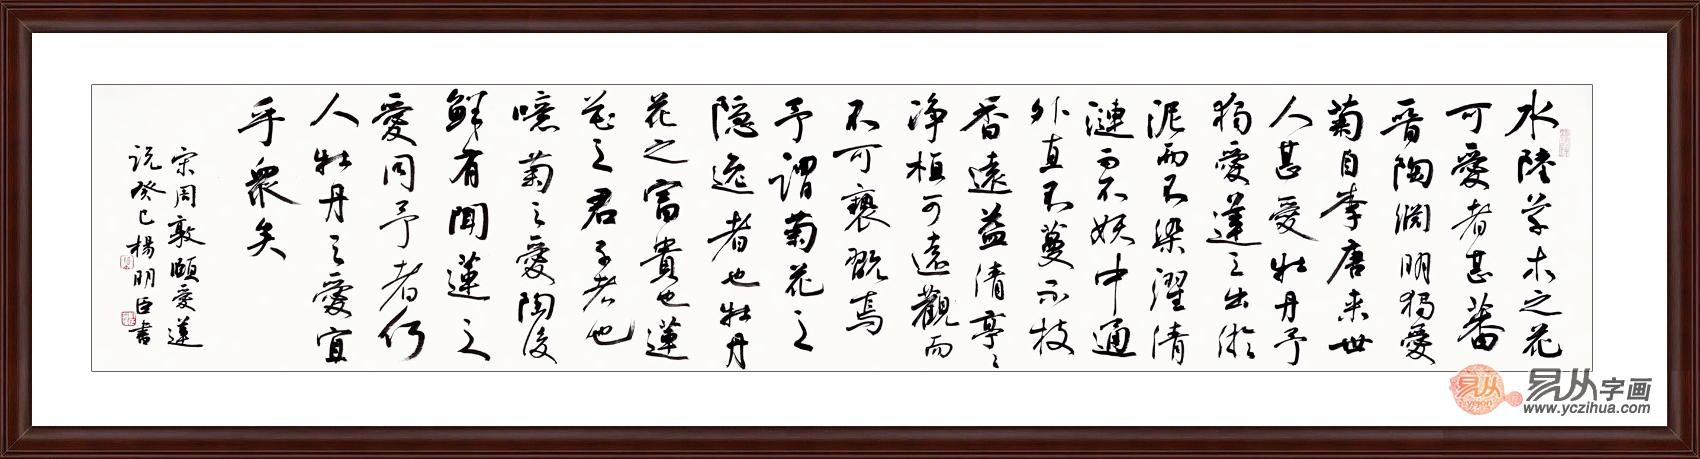 水陸草木之花
可愛者甚蕃
晉陶淵明獨愛
菊自李唐来世
人甚愛牡丹予
獨愛蓮之出淤
泥而不染濯清
漣而不妖中通
外直不蔓不枝
香遠益清亭々
净植可遠觀而
不可褻翫焉
予謂菊花之
隐逸者也牡丹
花之富貴也蓮
花之君子者也
噫菊之愛陶後
鮮有聞蓮之
愛同予者何
人牡丹之愛宜
乎衆矣
宋周敦頤愛蓮
説癸巳楊明臣書
易从
yejon
易从字画
www.yczihua.com